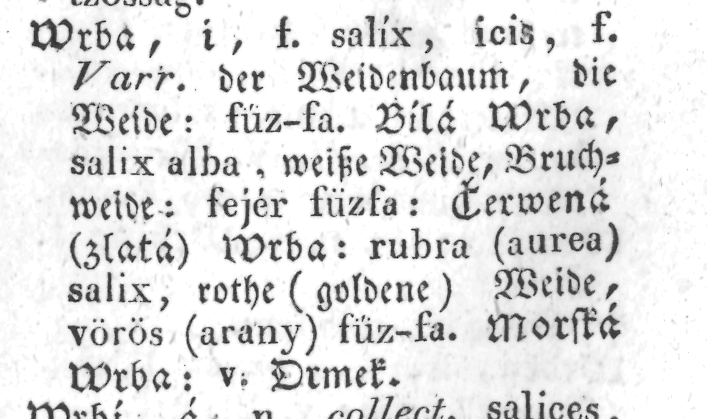 Wrba, i, f. salix, icis, f.
Varr. der Weidenbaum, die
Weide: füz-fa. Bílá Wrba,
salix alba, weiße Weide, Bruch=
weide: fejér füzfa: Čerwená
(zlatá) Wrba: rubra (aurea)
salix, rothe (goldene) Weide,
vörös (arany) füz-fa. Morſká
Wrba: v. Drmek.
Wrbí, á, n. collect. salices,